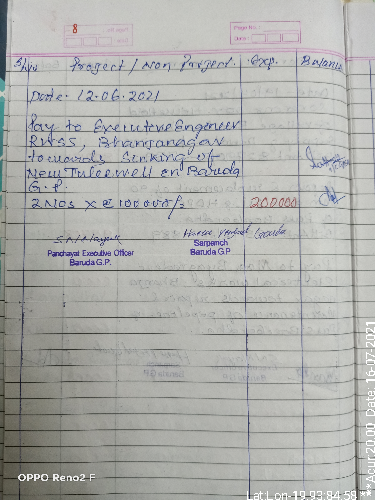 8
Page No.:
Date:
Sl.No Project / Non Project. Exp. Balance
Date- 12-06-2021
Pay to Executive Engineer
RWSS, Bhanjanagar
towards Sinking of
New Tubewell on Baruda
G.P.
2 Nos x @ 100000/- 200000
Panchayat Executive Officer
Baruda G.P.
Sarpanch
Baruda G.P.
OPPO Reno2 F
Lat Lon-19.93:84.58 ***Acur 20.00, Date, 16-07-2021